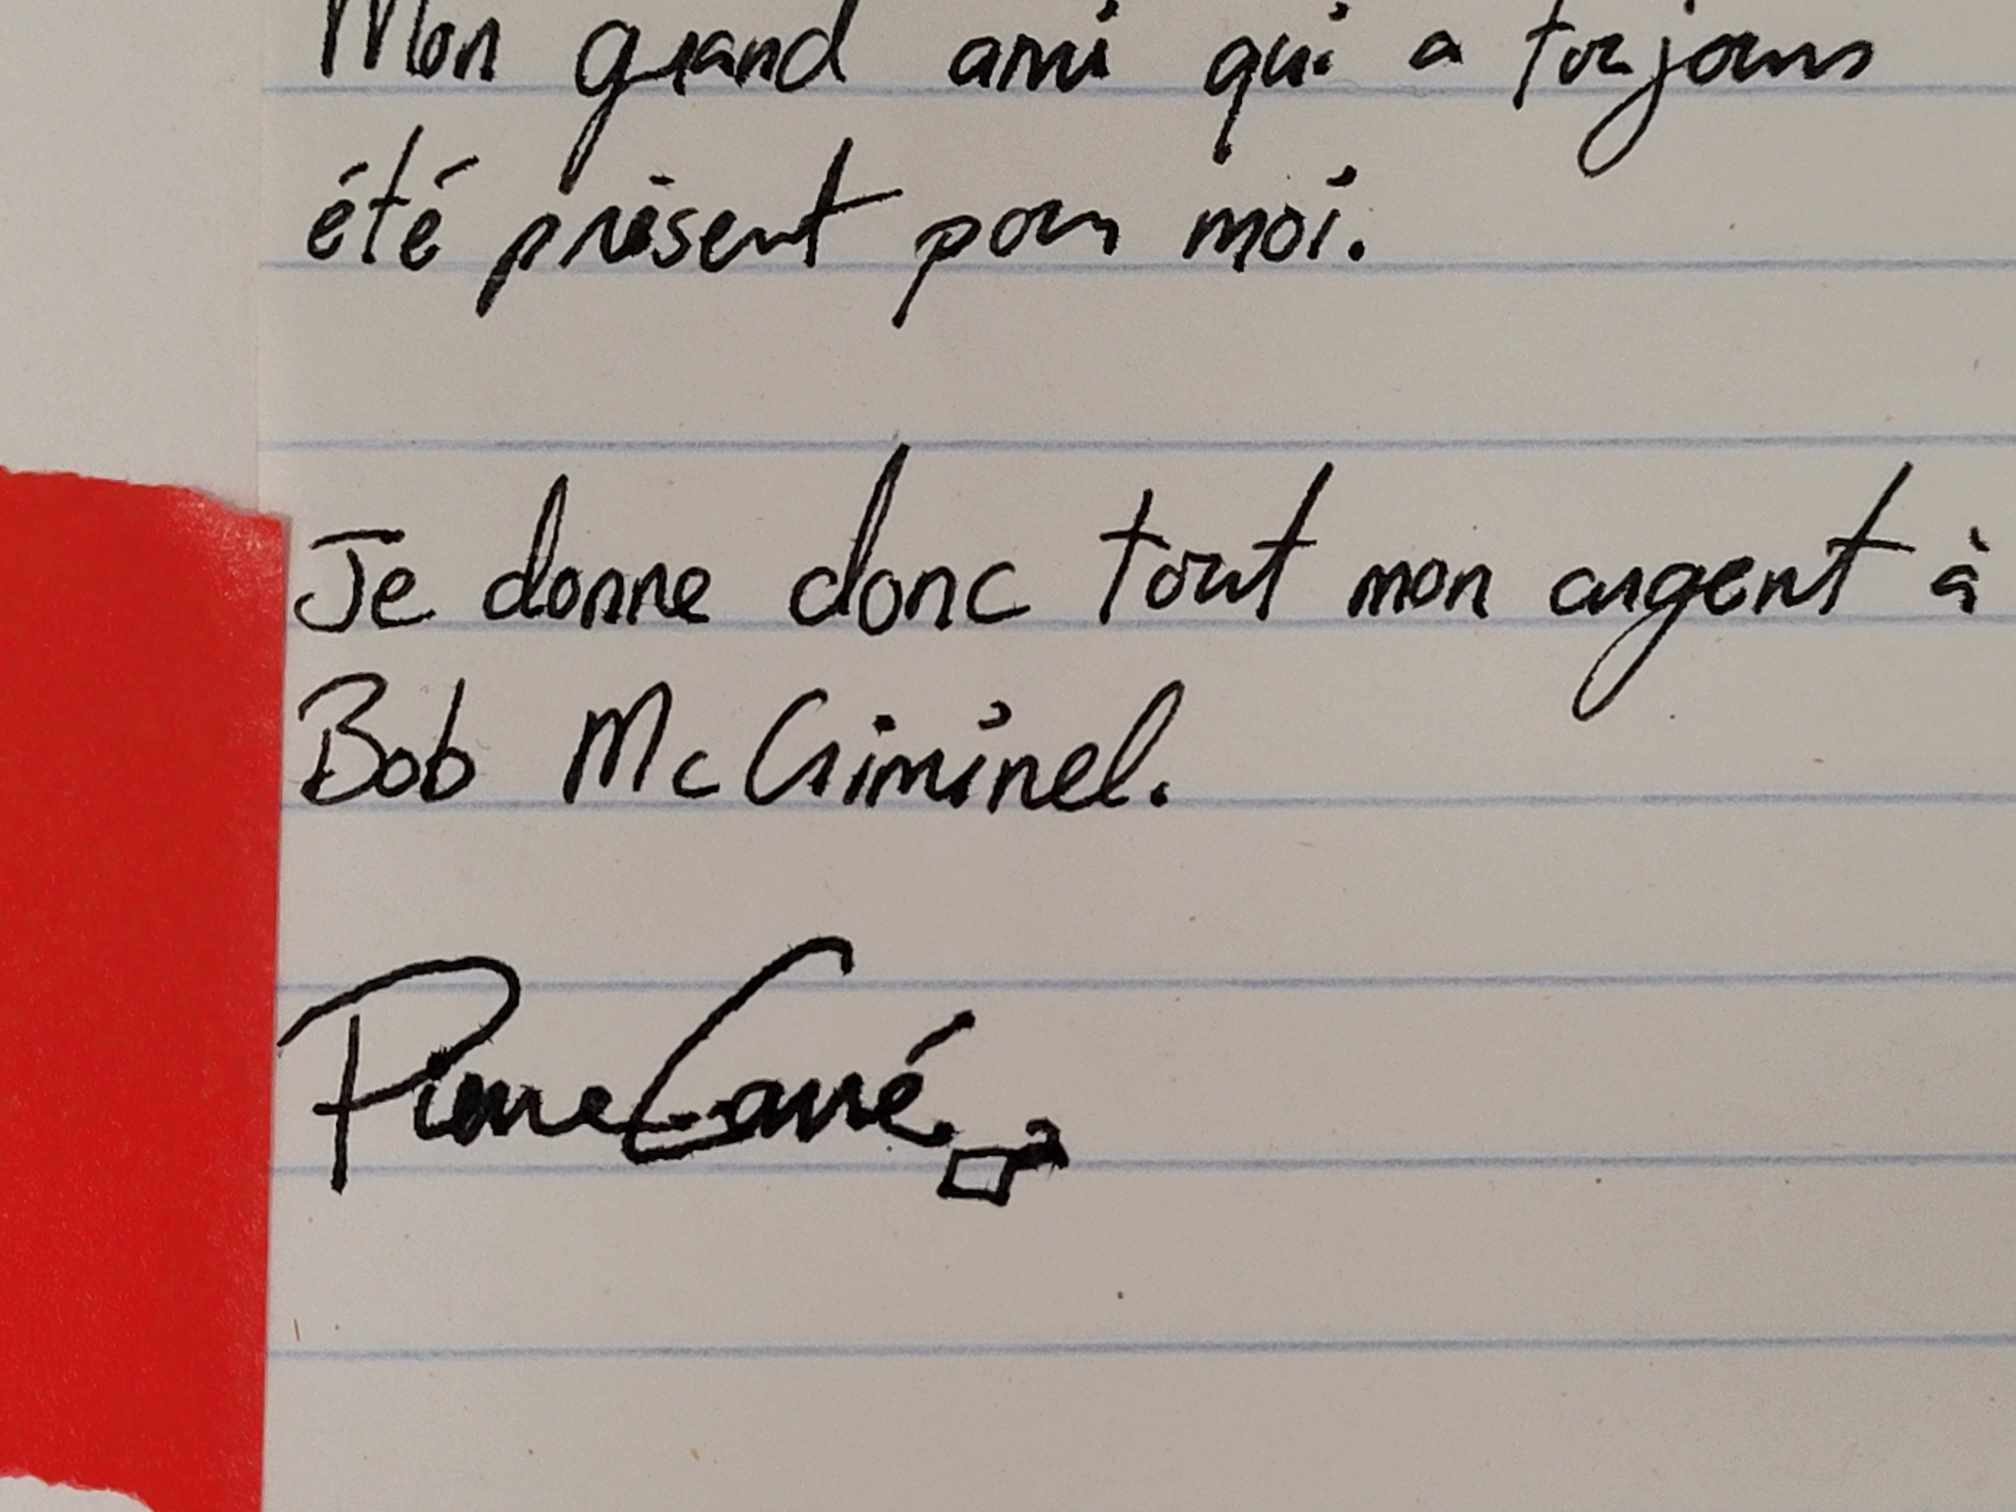 Mon grand ami qui a toujours
été présent pour moi.
Je donne donc tout mon argent à
Bob McCriminel.
Pierre Carré